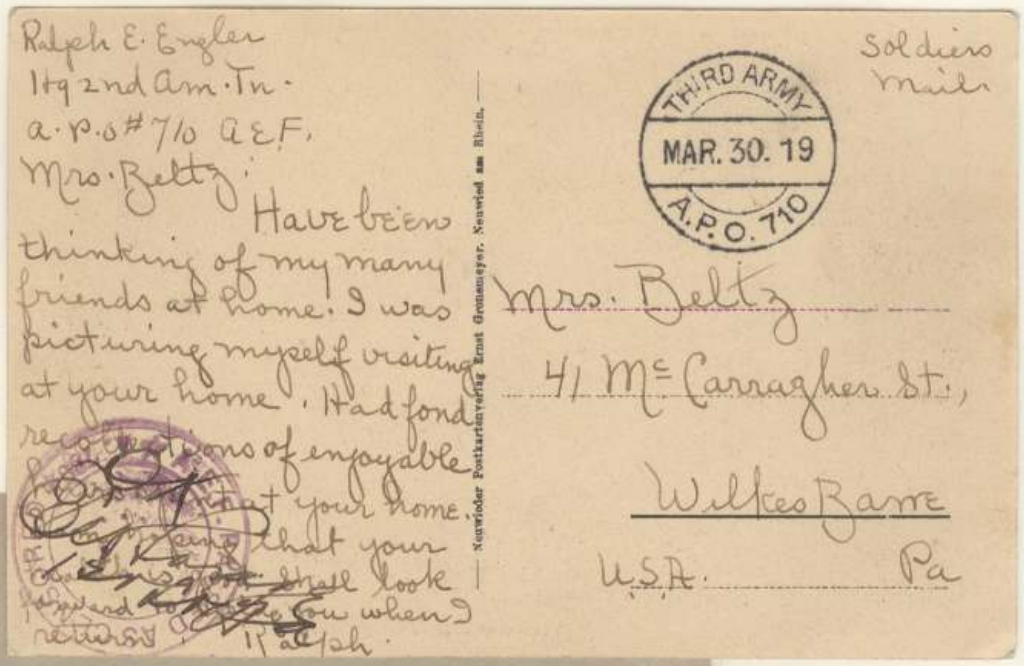 Ralph E. Engler
Hq 2nd Am. Tn.
A.P.O # 710 A E F.
Mrs. Beltz:
Have been
thinking of my many
friends at home. I was
picturing myself visiting
at your home. Had fond
recollections of enjoyable
at your home.
that your
shall look
forward to you when I
return. Ralph.
Neuwieder Postkartenverlag Ernst Gronemeyer, Neuwied am Rhein.
Soldiers
Mail
THIRD ARMY
MAR. 30. 19
A.P.O. 710
Mrs. Beltz
41 McCarragher St.,
Wilkes Barre
U.S.A. Pa